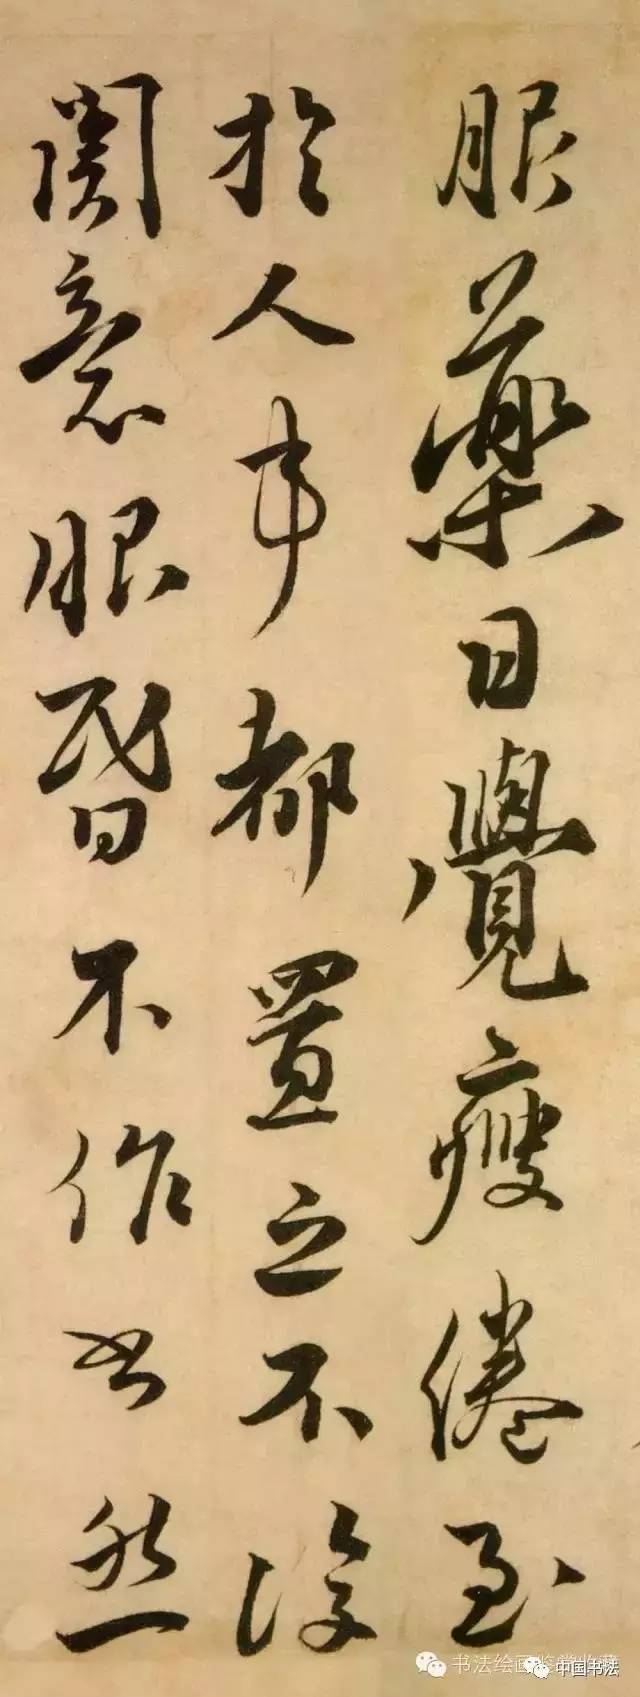 服藥日覺瘦倦至
於人事都置之不復
關意眼昏不作書然
书法绘画鉴赏收藏
中国书法